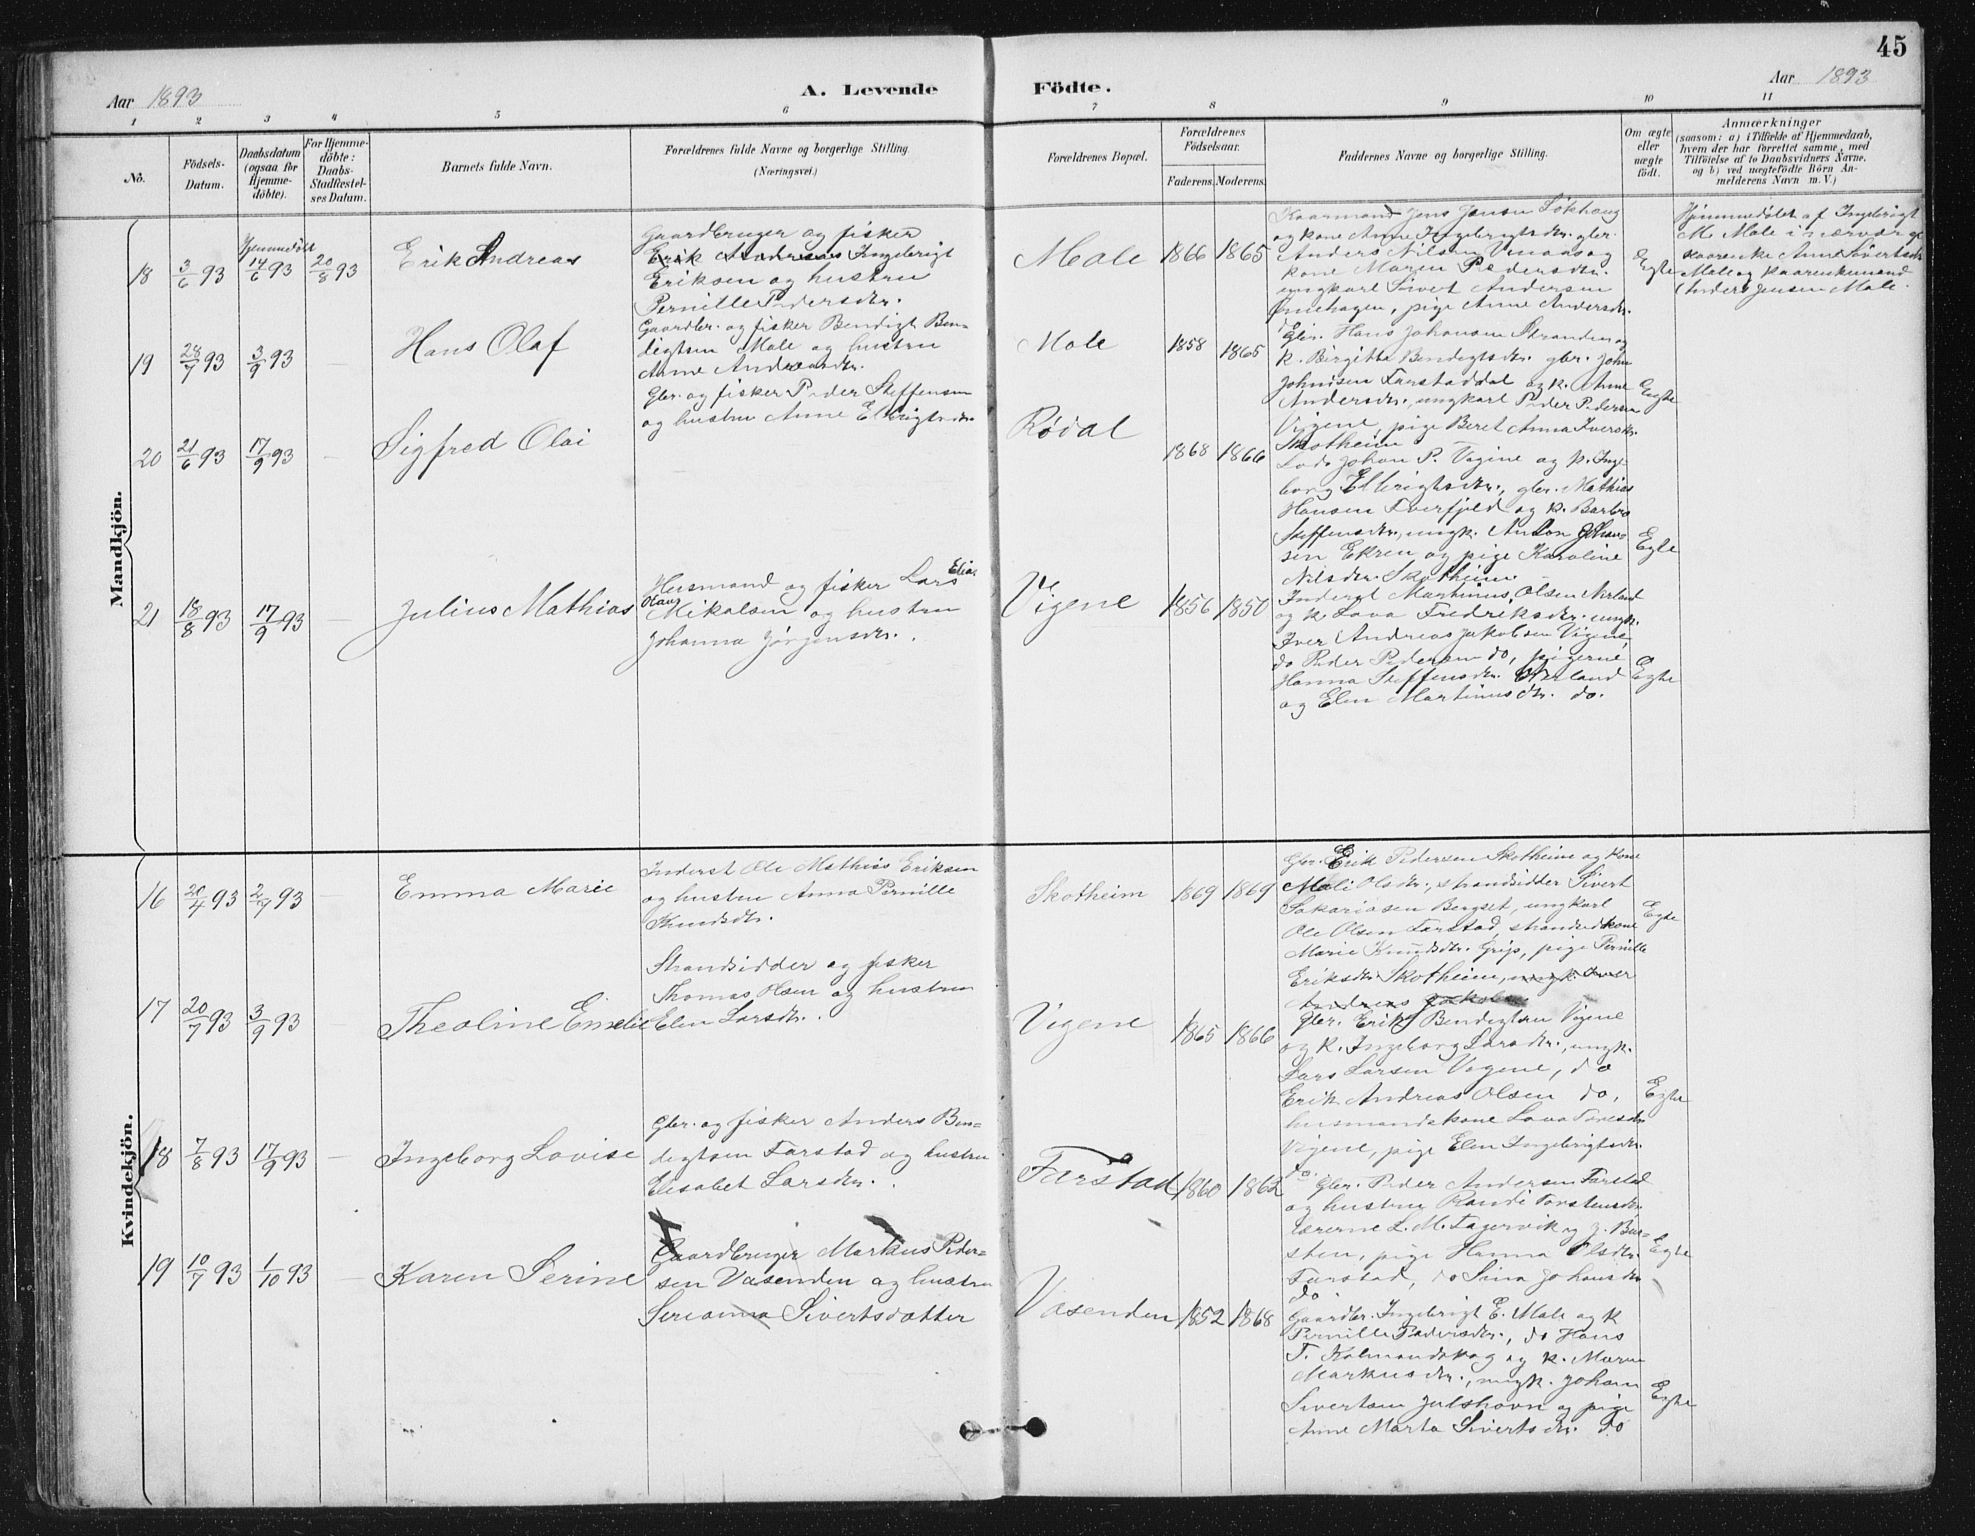 45
Aar 1893
A. Levende
Födte.
Aar 1893
1 2 3 4 5 6 7 8 9 10 11
No.
Födsels-
Datum.
Daabsdatum
(ogsaa for
Hjemme-
döbte).
For Hjemme-
döbte:
Daabs-
Stadfæstel-
ses Datum.
Barnets fulde Navn.
Forældrenes fulde Navne og borgerlige Stilling
(Næringsvei.)
Forældrenes Bopæl.
Forældrenes
Födselsaar.
Faderens. Moderens.
Faddernes Navne og borgerlige Stilling.
Om ægte
eller
uægte
födt.
Anmærkninger
(saasom: a) i Tilfælde af Hjemmedaab,
hvem der har forrettet samme, med
Tilföielse af to Daabsvidners Navne.
og b) ved uægtefödte Börn An-
melderens Navn m. V.)
Mandkjön.
18
3/6 93
Hjemmedöbt
14/6 93
20/8 93
Erik Andreas
Gaardbruger og fisker
Erik Andreas Ingebrigt
Eriksen og hustru
Pernille Pedersdtr.
Male
1866 1865
Kaarmand Jens Jensen Sökhaug
og kone Anne Ingebrigtsdtr. gbr.
Anders Nilsen
kone Maren Pedersdtr.
ungkarl Sivert Andersen
pige Anne Andersdtr.
do
Egte
Hjemmedöbt af Ingebrigt
M. Male i nærvær af
Anne Sivertsdtr.
Male og
Anders Jensen Male.
19
28/7 93
3/9 93
Hans Olaf
Gaardbr. og fisker Bendigt Ben-
digtsen Male og hustru
Anne Andreasdtr.
Male
1858 1865
Gbr. Hans Johansen Stranden og
k. Birgitta Bendigtsdtr. gbr. John
Johnsen Farstaddal og k. Anne
Andersdtr., ungkarl Peder Pedersen
Vigene, pige Beret Anna Iversdtr.
Skotheim
Egte
20
21/6 93
17/9 93
Sigfred Olai
Gbr. og fisker Peder Steffensen
og hustru Anne Ellingsdtr.
Rødal
1868 1866
Lods Johan P. Vigine og k. Inge-
borg gbr. Mathias
Hansen Tverfjeld og k. Barbro
Steffensdtr., ungk. Anton Johan-
sen Ekren og pige Karoline
Nilsdtr. Skotheim.
Egte
21
18/8 93
17/9 93
Julius Mathias
Husmand og fisker Lars Elias
Olaus
Mikalsen og hustru
Johanna Jørgensdtr.
Vigene
1856 1850
Inderst Martinus Olsen Nerland
og k. Lova Fredriksdtr. ungk.
Iver Andreas Jakobsen Vigene,
do Peder Pedersen do, pigerne
Hanna Steffensdtr. Nerland
og Elen Martinusdtr. do.
Egte
Kvindekjön.
16
20/4 93
2/9 93
Emma Marie
Inderst Ole Mathias Eriksen
og hustru Anna Pernille
Knudsdtr.
Skotheim
1869 1869
Gbr. Erik Pedersen Skotheim og kone
Mali Olsdtr., strandsidder Sivert
Sakariasen Bergset, ungkarl
Ole Olsen Farstad, strandsidkone
Marie Knudsdtr. Grip, pige Pernille
Eriksdtr. Skotheim, ungk. Iver
Andreas Jakobsen
Egte
17
20/7 93
3/9 93
Theoline Emelie
Strandsidder og fisker
Thomas Olsen og hustru
Elen Larsdtr.
Vigene
1865 1866
Gbr. Erik Bendigtsen Vigene
og k. Ingeborg Larsdtr., ungk.
Lars Larsen Vigene, do
Erik Andreas Olsen do,
husmandskone Lava Toresdtr.
Vigene, pige Elen Ingebrigtsdtr.
do.
Egte
18
7/8 93
17/9 93
Ingeborg Lovise
Gbr. og fisker Anders Ben-
digtsen Farstad og hustru
Elisabet Larsdtr.
Farstad
1860 1862
Gbr. Peder Andersen Farstad
og hustru Randi Torstensdtr.
lærerne L. M. Fagervik og J. Bus-
sten, pige Hanna Olsdtr.
Farstad, do Sina Johansdtr
do.
Egte
19
10/7 93
1/10 93
Karen Serine
Gaardbruger Markus Peder-
sen Vasenden og hustru
Serianna Sivertsdatter
Vasenden
1852 1868
Gaardbr. Ingebrigt E. Male og k
Pernille Pedersdtr., do Hans
T. Kalmandskog og k. Maren
Markusdtr., ungk. Johan
Sivertsen Julshavn og pige
Anne Marta Sivertsdtr. do
Egte